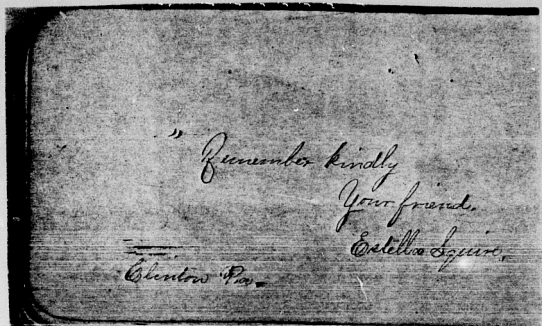 " Remember kindly
Your friend.
Estella Squire.
Clinton Pa.